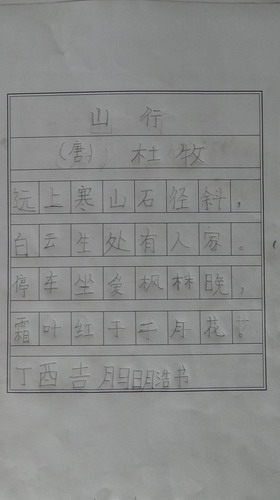 山行
（唐）杜牧
远上寒山石径斜，
白云生处有人家。
停车坐爱枫林晚，
霜叶红于二月花。
丁酉吉月日明浩书